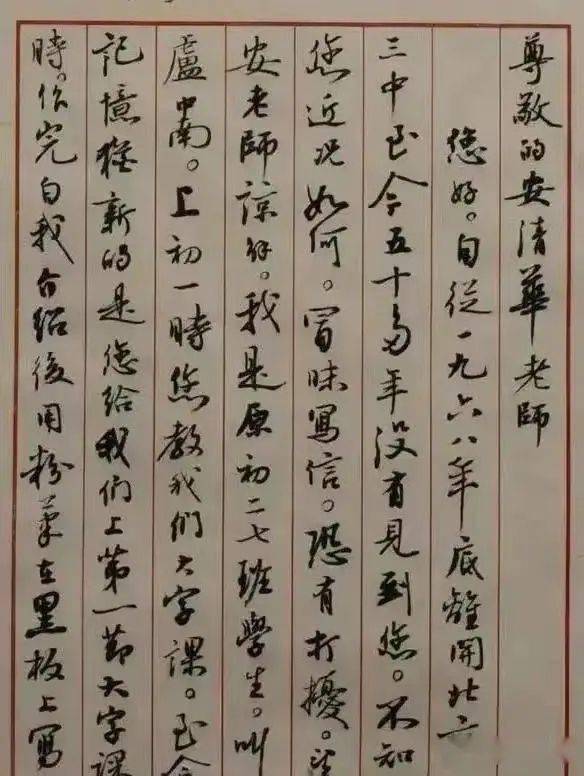 尊敬的安清華老師
您好。自從一九六八年底離開北京
三中至今五十多年没有見到您。不知
您近況如何。冒昧寫信。恐有打擾。望
安老師諒解。我是原初二七班學生。叫
盧中南。上初一時您教我們大字課。至今
記憶猶新的是您給我們上第一節大字課
時。作完自我介紹後用粉筆在黑板上寫